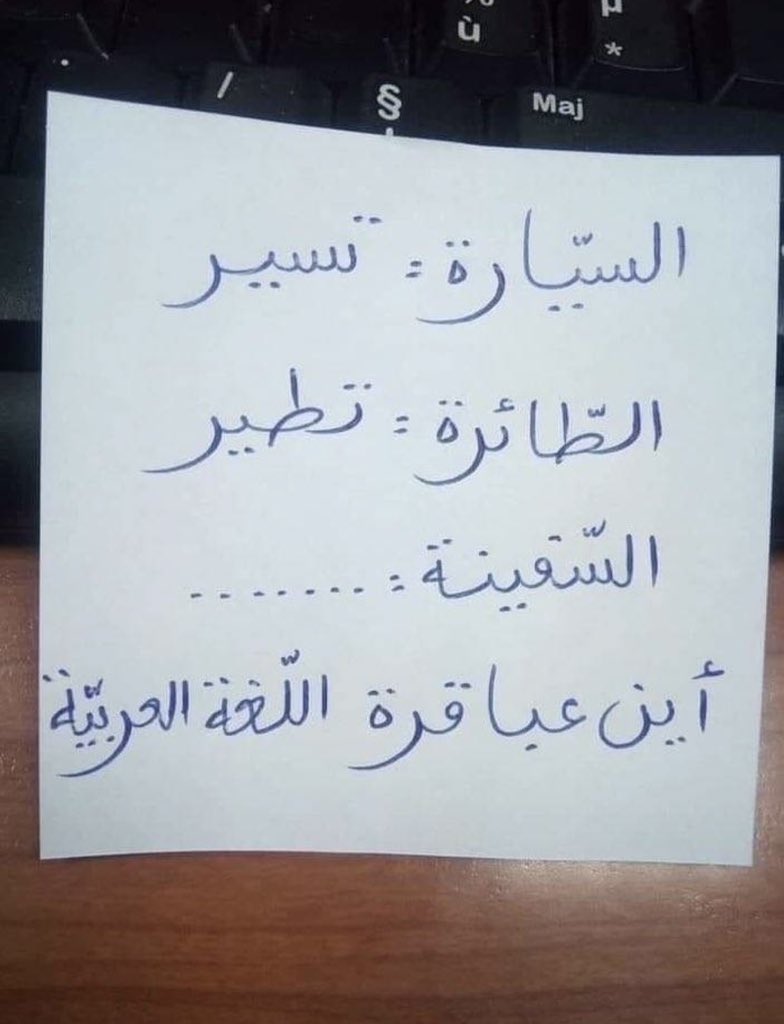 ù
µ
*
/
§
Maj
السّيّارة : تسير
الطّائرة : تطير
السّفينة : ........
أين عباقرة اللّغة العربيّة